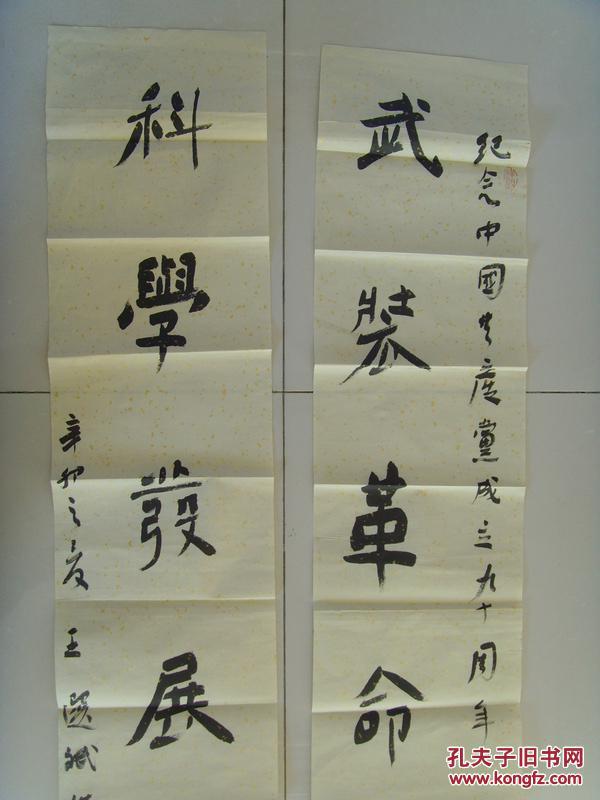 紀念中國共產黨成立九十周年
武裝革命
科學發展
辛卯之夏 王選
孔夫子旧书网
www.kongfz.com